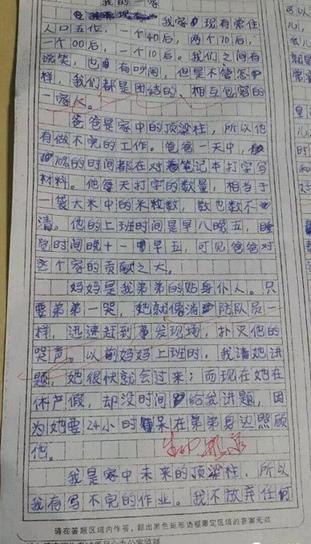 我的一家
我家现有常住
人口五位，一个40后，两个70后，
一个00后，一个10后。我们之间有
欢笑，也有吵闹，但是不管怎
样，我们都是团结的、相互包容的
一家人。
爸爸是家中的顶梁柱，所以他
有做不完的工作。爸爸一天中，
的时间都在对着笔记本打字写
材料。他每天打字的数量，相当于
一袋大米中的米粒数，数也数不
清。他的上班时间是早八晚五，睡
觉时间晚十一早五，可见爸爸对
这个家的贡献之大。
妈妈是我弟弟的贴身仆人。只
要弟弟一哭，她就像消防队员一
样，迅速赶到事发现场，扑灭他的
哭声。以前妈妈上班时，我请她讲
题，她很快就会过来；而现在她在
休产假，却没时间给我讲题，因
为她要24小时呆在弟弟身边照顾
他。
生动
我是家中未来的顶梁柱，所以
我有写不完的作业。我不放弃任何
请在答题区域内作答，超出黑色矩形边框限定区域的答案无效